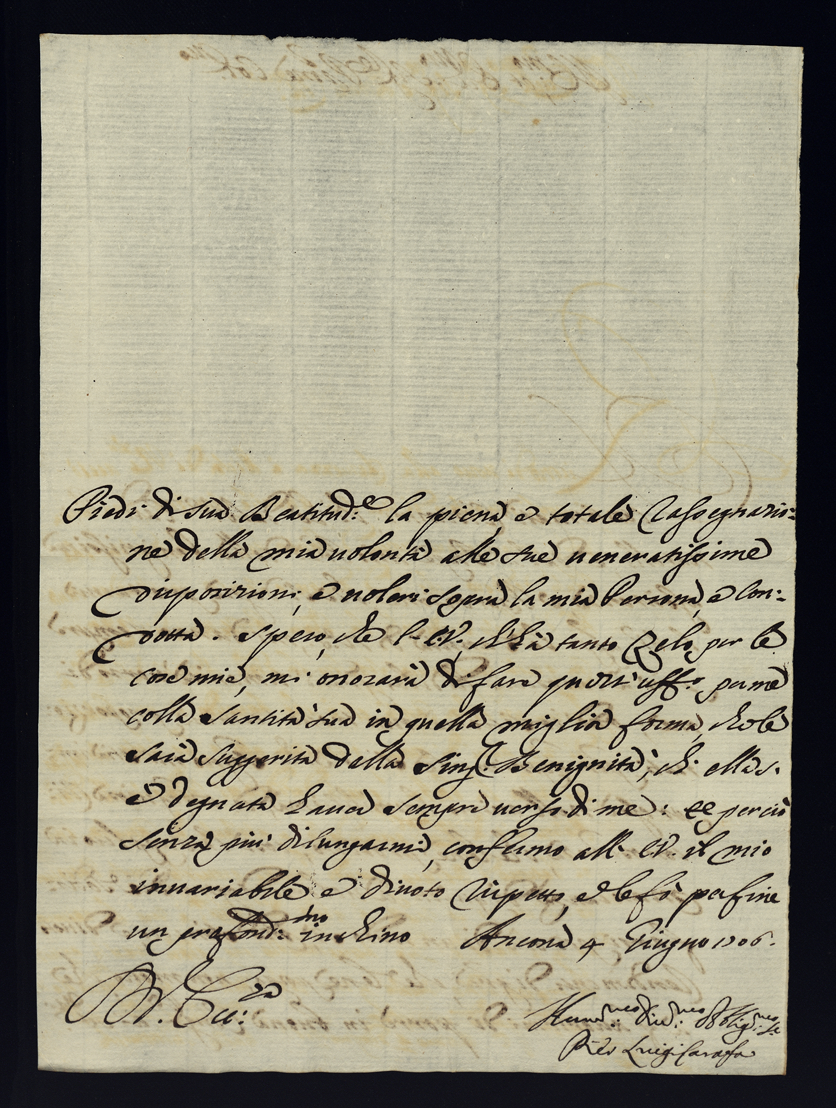 Piedi di sua Beatitud.e la piena, e totale rassegnazio=
ne della mia volontà alle sue veneratissime
disposizioni, e voleri sopra la mia Persona, e con=
dotta. Spero, che l'E.V., ch'hà tanto Zelo per le
cose mie, mi onorarà di fare questi uff.i per me
colla Santità sua in quella miglior forma che le
sarà suggerita della Sing.r Benignità, ch'ella s.
è degnata havere sempre verso di me: et perciò
senza più dilungarmi, confermo all'E.V. il mio
invariabile e divoto rispetto, e le fò per fine
un profond.mo inchino Ancona 4 Giugno 1706.
D. V. Ecc.za
Hum.mo Div.mo Obblig.mo Se.
Pier Luigi Carafa